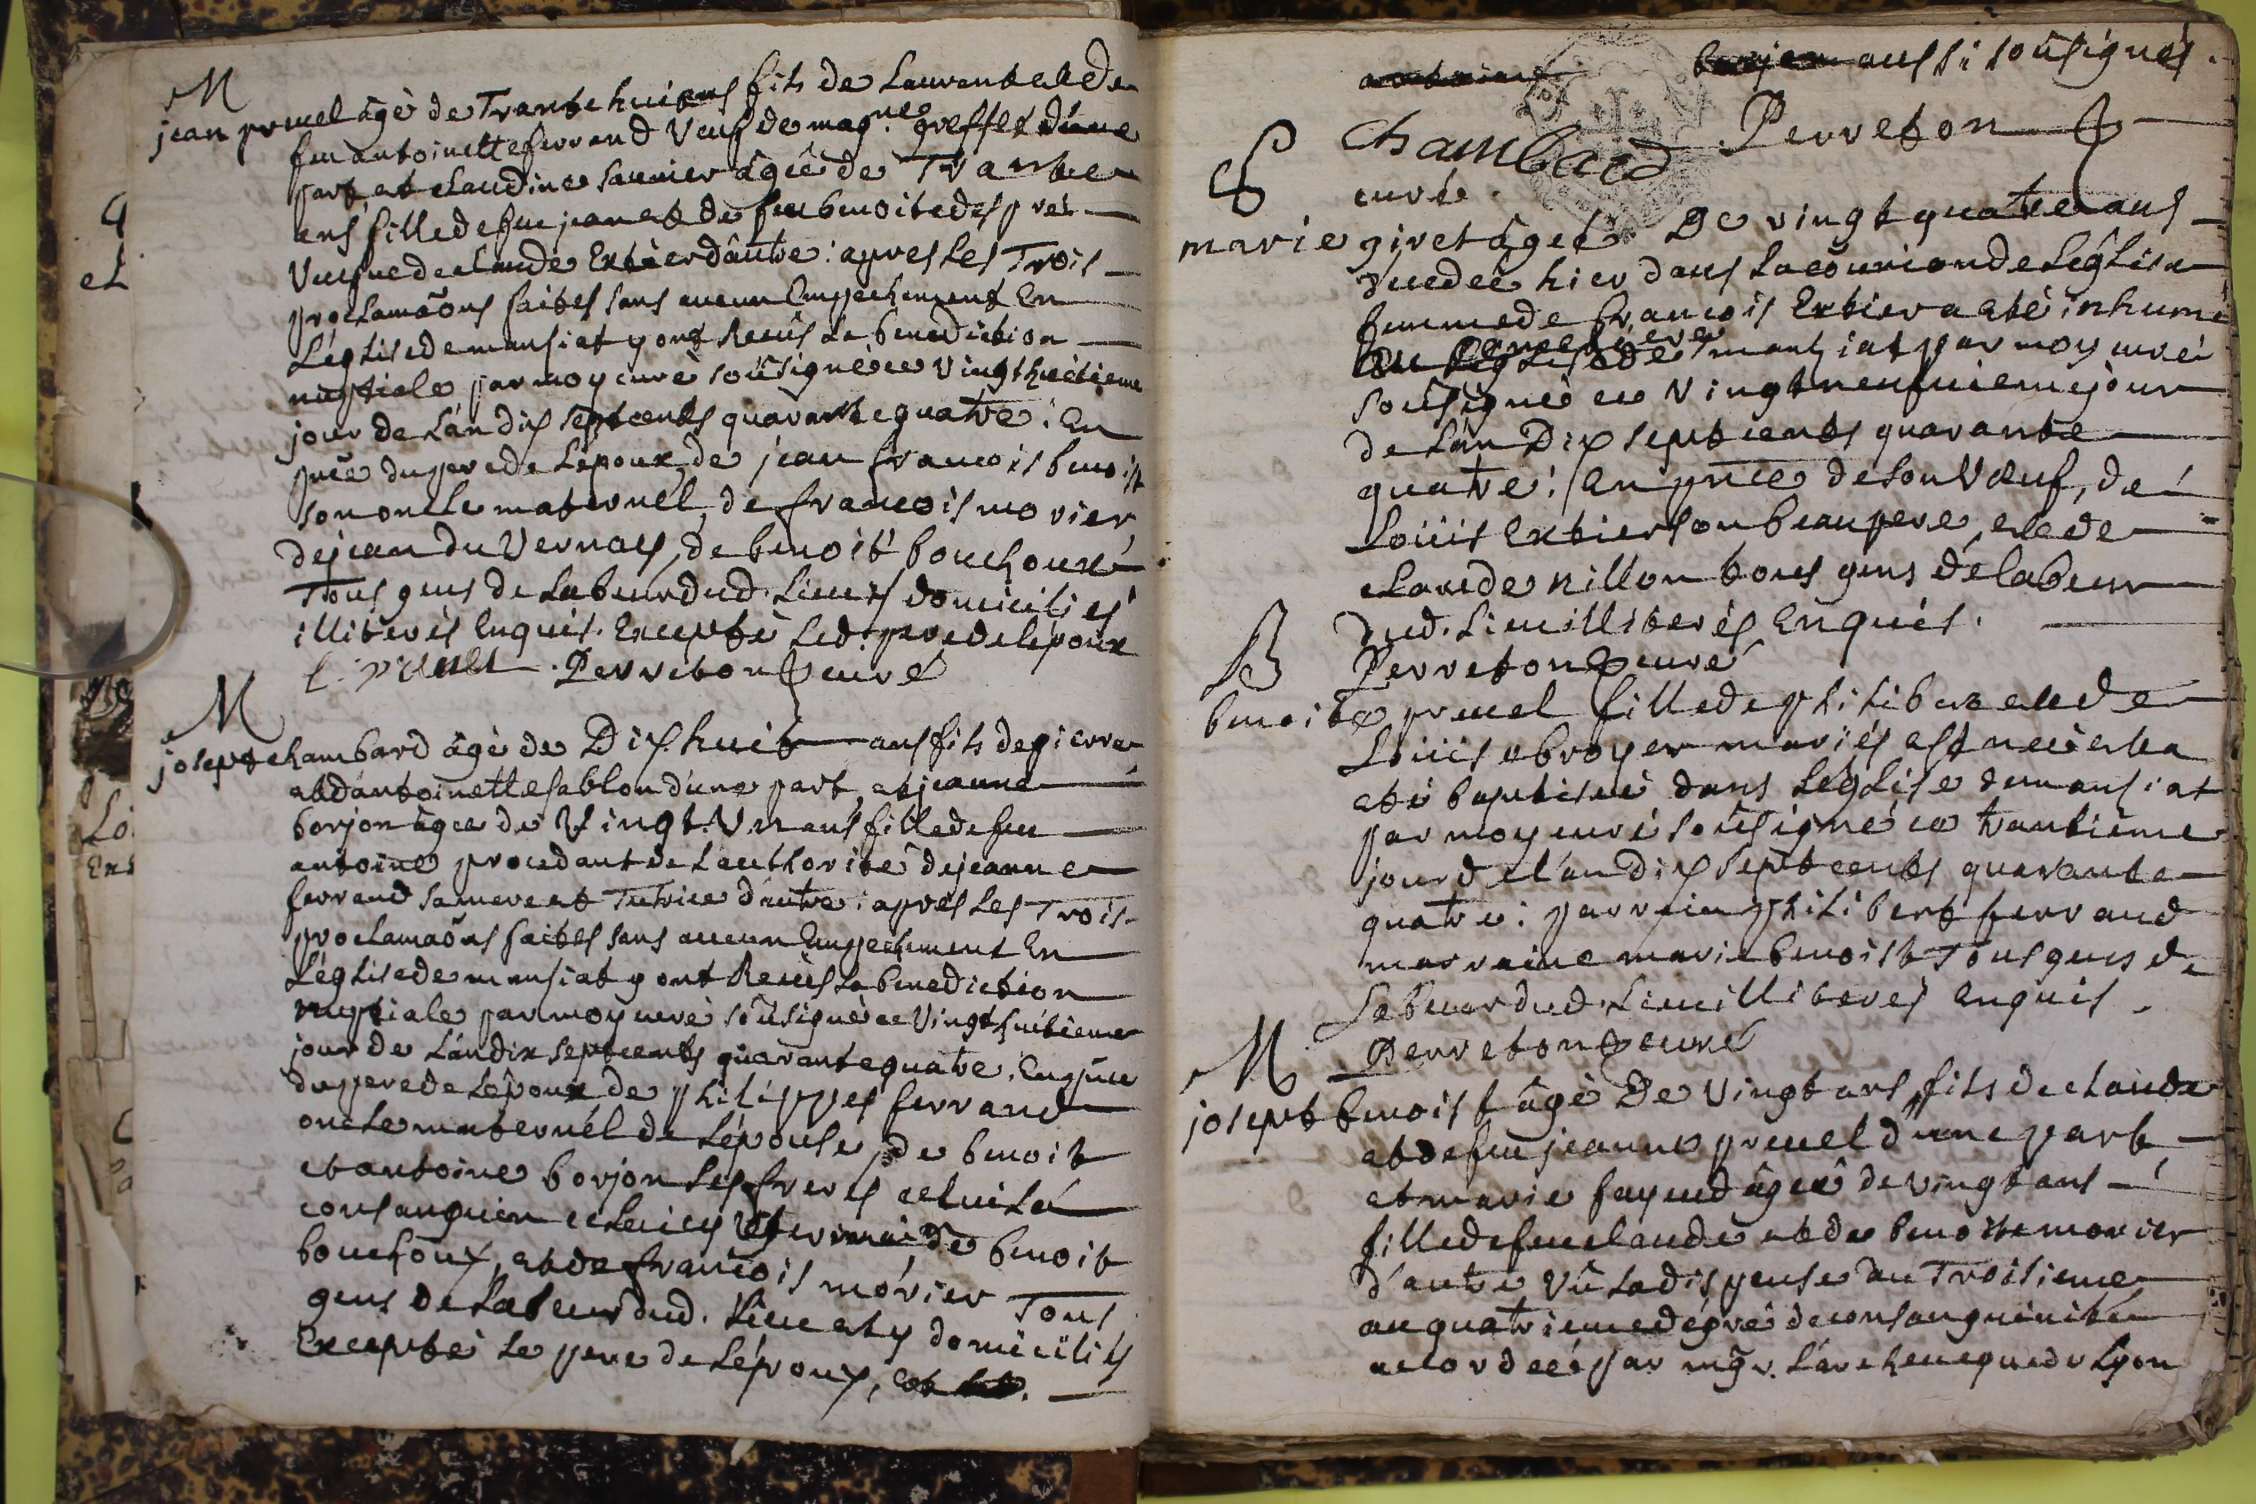 M
jean pruel âgé de Trante huit ans fils de Laurent et de
feu antoinette ferrand Veuf de mag.ne greffet d'une
part, et claudine saunier âgée de Trante
ans fille de feu jean et de feu benoite despréz
Veufue de claude Extier d'autre : apres les Trois
proclamaõns faites sans aucun Empechement En
L'église de mansiat y ont Receüs la benediction
nuptiale par moy curé soûsigné ce Vingt huictieme
jour de L'an dix sept cents quarante quatre : En
pñce du pere de L'epoux, de jean francois benoist
son oncle maternel, de francois morier,
de jean du Vernay, de benoit bouchoux
Tous gens de Labeur dud. Lieu y domiciliés
illiterés Enquis. Excepté Led. pere de l'epoux
L. pruel Perreton curé
M
josept chambard âgé de Dix huit ans fils de pierre
et d'antoinette sablon d'une part, et jeanne
borjon âgée de Vingt Un ans fille de feu
antoine procedant de L'authorité de jeanne
ferrand sa mere et Tutrice d'autre : apres Les Trois
proclamaõns faites sans aucun Empechement En
L'église de mansiat y ont Receüs La benediction
nuptiale par moy curé soûsigné ce Vingt huitieme
jour de L'an dix sept cents quarante quatre. En pñce
du pere de L'époux de philippes ferrand
oncle maternel de L'épouse, de benoit
et antoine borjon ses freres celui là
consanguin celui cy de benoit
bouchoux, et de francois morier Tous
gens de Labeur dud. Lieu et y domiciliés
Excepté Le pere de L'époux,
aussi soûsignés.
Chambard Perreton
curé.
S
marie giret âgée De vingt quatre ans
decedeé hier dans La cõmunion de L'église
femme de francois Extier a eté inhumé
au cimetiere de mansiat par moy curé
soûsigné ce Vingt neufuieme jour
de L'an Dix sept cents quarante
quatre : En pñce de son Vœuf, de
Loüis Extier son beau pere, et de
claude nillon tous gens de labeur
dud. Lieu illiterés Enquis.
Perreton curé
B
benoite pruel fille de philibert et de
Loüise broyer mariés est neé et a
eté baptiseé dans L'église de mansiat
par moy curé soûsigné ce trantieme
jour de l'an dix sept cents quarante
quatre : parrain philibert ferrand
marraine marie benoist Tous gens de
Labeur dud. Lieu illiterés Enquis.
Perreton curé
M
josept benoist âgé De Vingt ans, fils de claude
et de feu jeanne pruel d'une part,
et marie fayend âgée de vingt ans
fille de feu claude et de benoite morier
d'autre Vû La dispense du Troisieme
au quatrieme dégré de consanguinité
accordeé par mgr. L'archeueque de Lyon